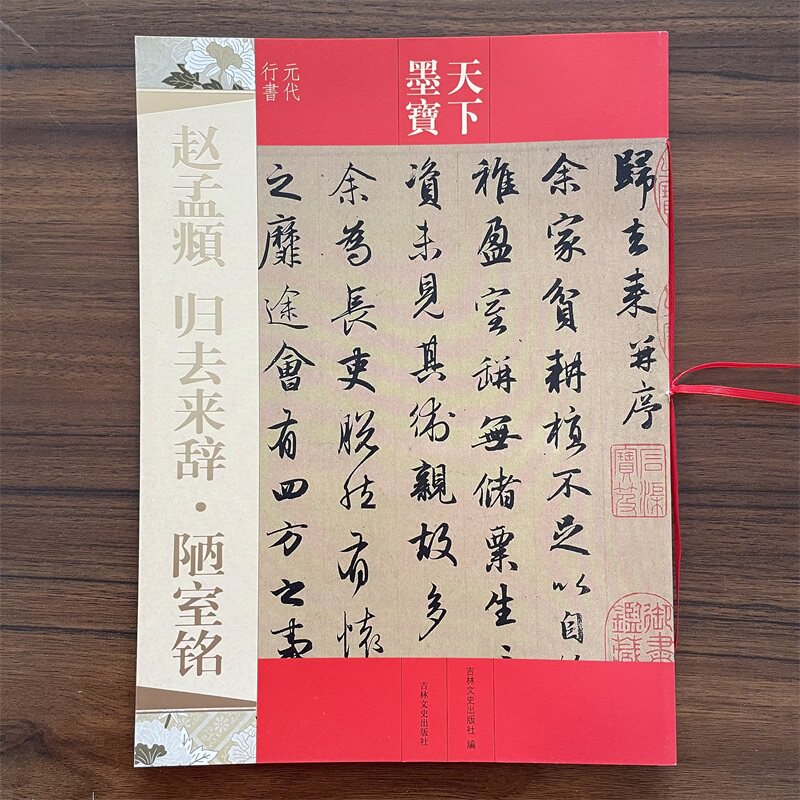 天下
墨寶
元代
行書
赵孟頫 归去来辞·陋室铭
歸去来并序
余家貧耕植不足以自
稚盈室缾無儲粟生
資未見其術親故多
余為長吏脱然有懷
之靡途會有四方之事
石渠
寶笈
御書
鑑藏
吉林文史出版社 编
吉林文史出版社